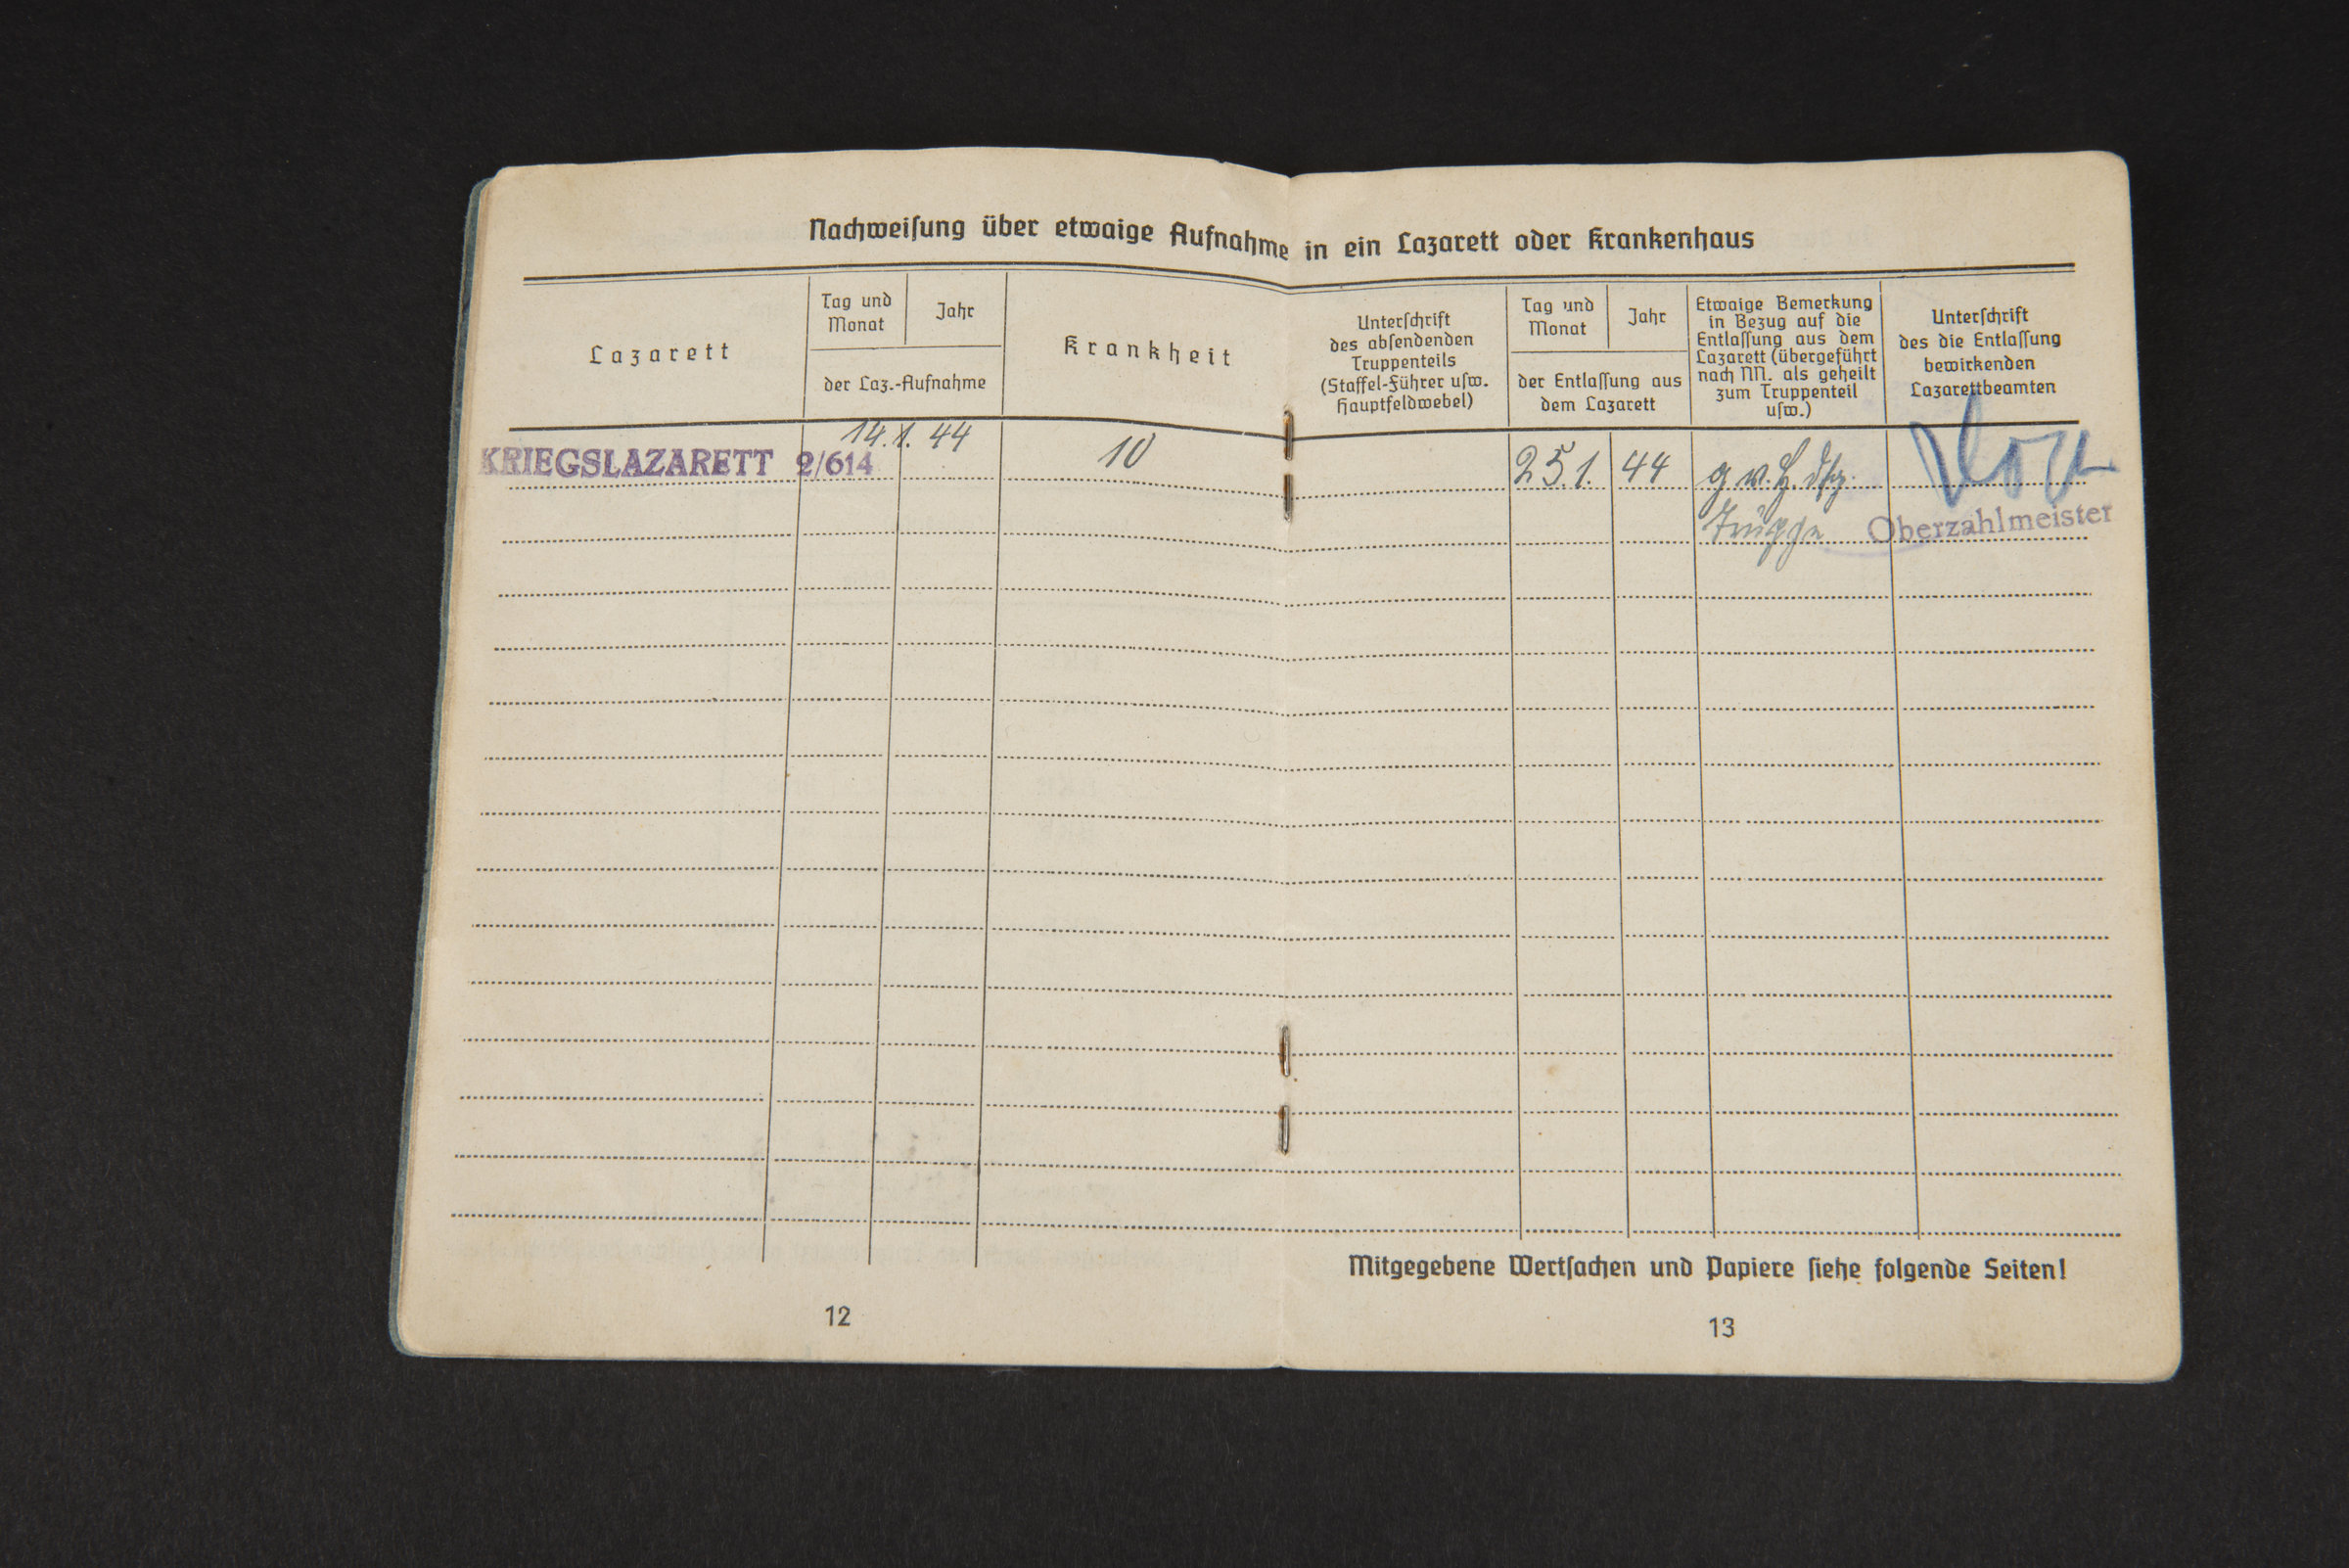 Nachweiſung über etwaige Aufnahme in ein Lazarett oder Krankenhaus
Lazarett
Tag und
Monat
Jahr
der Laz.-Aufnahme
Krankheit
Unterſchrift
des abſendenden
Truppenteils
(Staffel-Führer uſw.
Hauptfeldwebel)
Tag und
Monat
Jahr
der Entlaſſung aus
dem Lazarett
Etwaige Bemerkung
in Bezug auf die
Entlaſſung aus dem
Lazarett (übergeführt
nach NN. als geheilt
zum Truppenteil
uſw.)
Unterſchrift
des die Entlaſſung
bewirkenden
Lazarettbeamten
KRIEGSLAZARETT 2/614
14.1. 44
10
25.1. 44
g.v.H.
Truppe
Oberzahlmeister
Mitgegebene Wertſachen und Papiere ſiehe folgende Seiten!
12
13